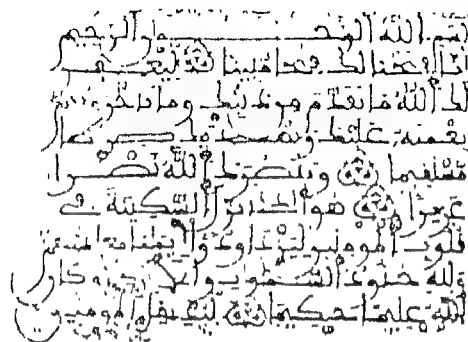 بسم الله الرحمن الرحيم
انا فتحنا لك فتحا مبينا ليغفر
لك الله ما تقدم من ذنبك وما تاخر ويتم
نعمته عليك ويهديك صرطا
مستقيما وينصرك الله نصرا
عزيزا هو الذي انزل السكينة في
قلوب المومنين ليزدادوا ايمنا مع
ولله جنود السموت والارض وكان
الله عليما حكيما ليدخل المومنين